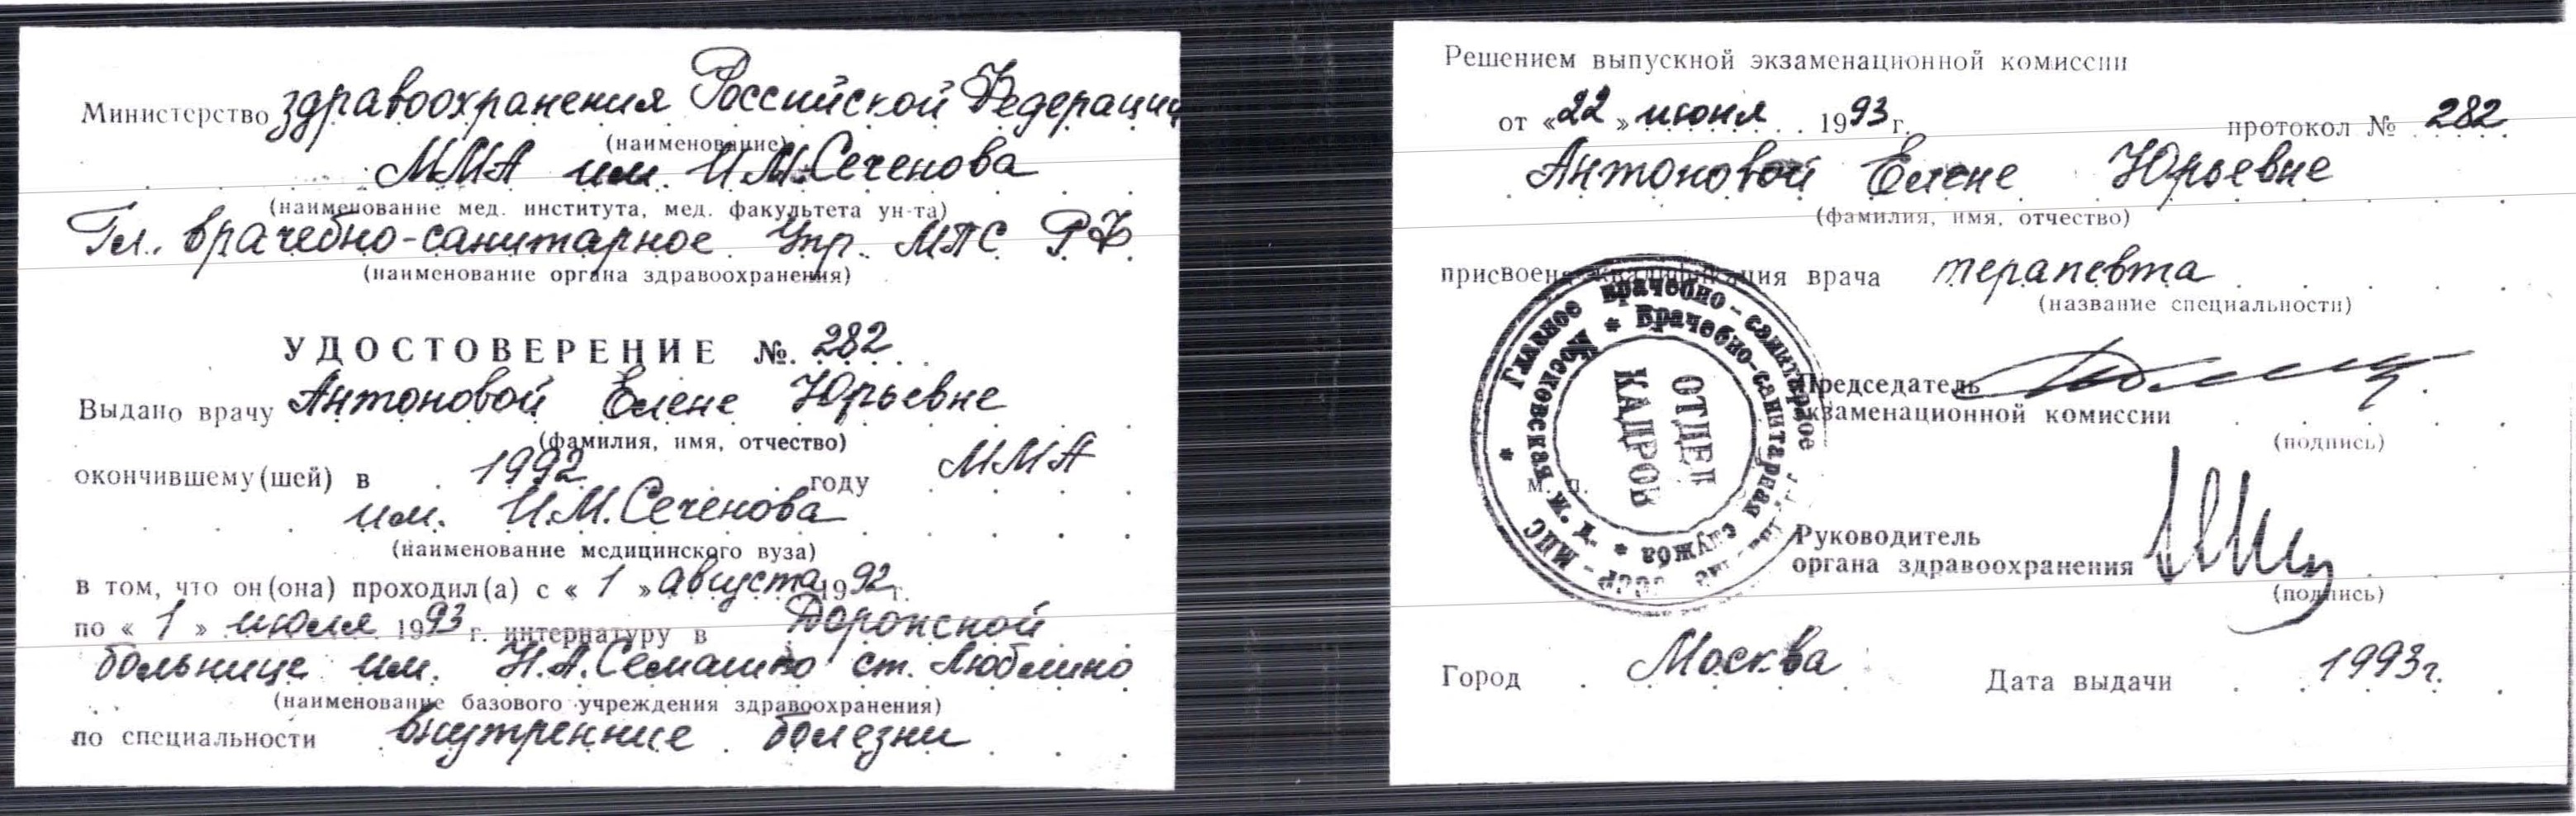 Министерство здравоохранения Российской Федерации
(наименование)
ММА им. И.М.Сеченова
(наименование мед. института, мед. факультета ун-та)
Гл. врачебно-санитарное Упр. МПС РФ
(наименование органа здравоохранения)
УДОСТОВЕРЕНИЕ №. 282
Выдано врачу Антоновой Елене Юрьевне
(фамилия, имя, отчество)
окончившему(шей) в 1992 году ММА
им. И.М.Сеченова
(наименование медицинского вуза)
в том, что он(она) проходил(а) с « 1 » августа 1992г.
по « 1 » июля 1993 г. интернатуру в Дорожной
больнице им. Н.А.Семашко ст. Люблино
(наименование базового учреждения здравоохранения)
по специальности внутренние болезни
Решением выпускной экзаменационной комиссии
от «22 » июня 1993 г. протокол № 282
Антоновой Елене Юрьевне
(фамилия, имя, отчество)
присвоена квалификация врача терапевта
(название специальности)
Председатель
экзаменационной комиссии
(подпись)
м. п.
Руководитель
органа здравоохранения
(подпись)
Город Москва Дата выдачи 1993г.
Главное врачебно-санитарное
МПС СССР
Московская ж. д. * Врачебно-санитарная служба *
ОТДЕЛ
КАДРОВ